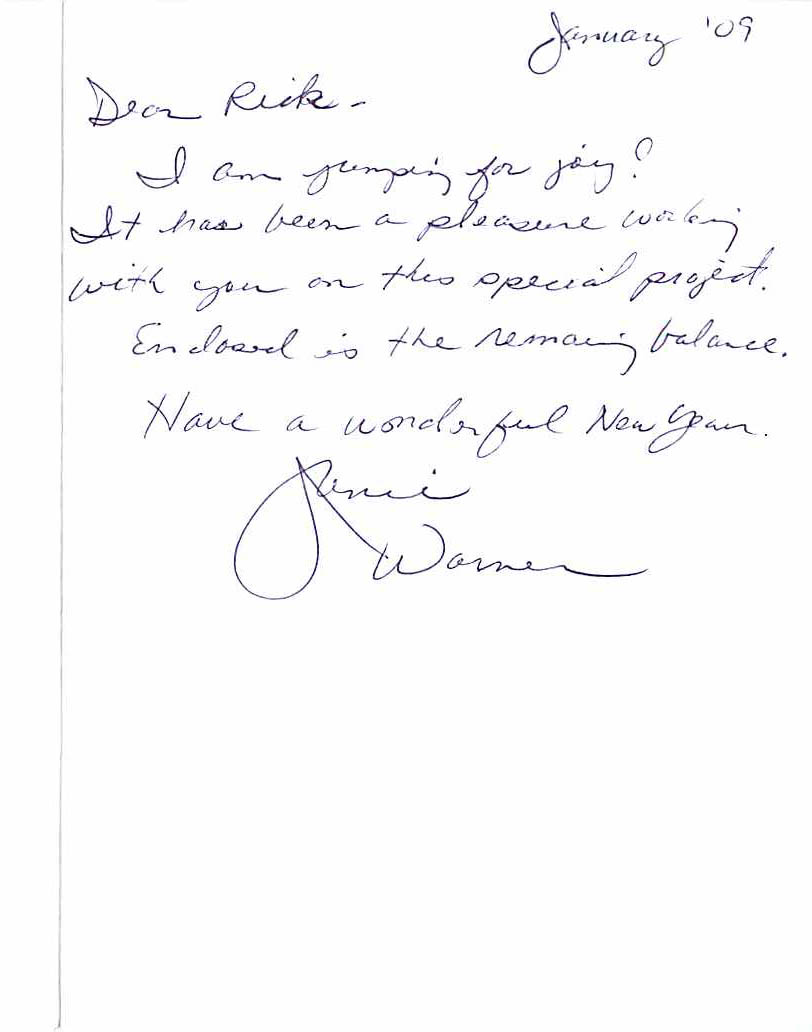 January '09
Dear Rick -
I am jumping for joy!
It has been a pleasure working
with you on this special project.
Enclosed is the remaining balance.
Have a wonderful New Year.
Janie
Warner